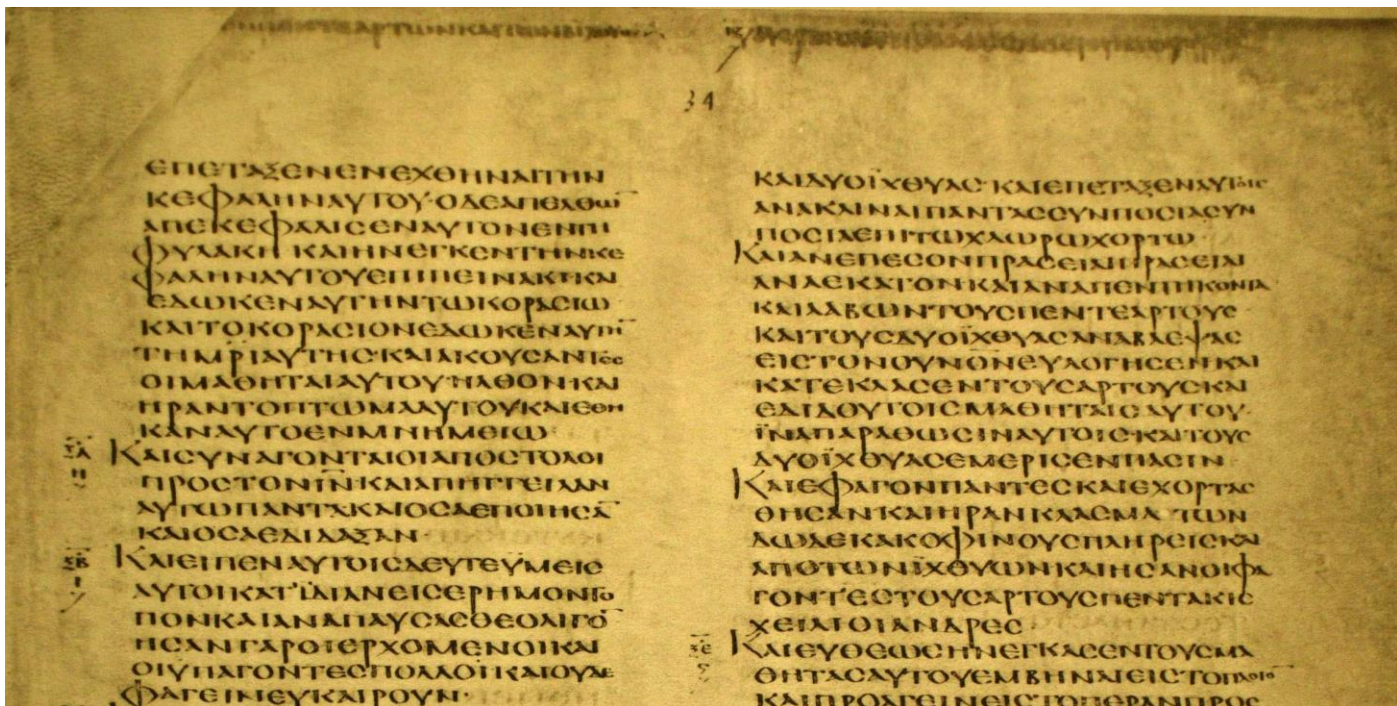 34
ΕΠΕΤΑΞΕΝΕΝΕΧΘΗΝΑΙΤΗΝ
ΚΕΦΑΛΗΝΑΥΤΟΥ·ΟΔΕΑΠΕΛΘΩ̅
ΑΠΕΚΕΦΑΛΙϹΕΝΑΥΤΟΝΕΝΤΗ
ΦΥΛΑΚΗ ΚΑΙΗΝΕΓΚΕΝΤΗΝΚΕ
ΦΑΛΗΝΑΥΤΟΥΕΠΙΠΕΙΝΑΚΙΚΑΙ
ΕΔΩΚΕΝΑΥΤΗΝΤΩΚΟΡΑϹΙΩ
ΚΑΙΤΟΚΟΡΑϹΙΟΝΕΔΩΚΕΝΑΥΤΗ̅
ΤΗΜ̅Ρ̅Ι̅ΑΥΤΗϹ·ΚΑΙΑΚΟΥϹΑΝΤΕϹ
ΟΙΜΑΘΗΤΑΙΑΥΤΟΥΗΛΘΟΝΚΑΙ
ΗΡΑΝΤΟΠΤΩΜΑΑΥΤΟΥΚΑΙΕΘΗ
ΚΑΝΑΥΤΟΕΝΜΝΗΜΕΙΩ·
ξ̅α̅ ΚΑΙϹΥΝΑΓΟΝΤΑΙΟΙΑΠΟϹΤΟΛΟΙ
η ΠΡΟϹΤΟΝΙ̅Ν̅ΚΑΙΑΠΗΓΓΕΙΛΑΝ
ΑΥΤΩΠΑΝΤΑΚΑΙΟϹΑΕΠΟΙΗϹΑ̅
ΚΑΙΟϹΑΕΔΙΔΑΞΑΝ·
ξ̅β̅ ΚΑΙΕΙΠΕΝΑΥΤΟΙϹΔΕΥΤΕΫΜΕΙϹ
ι ΑΥΤΟΙΚΑΤΪΔΙΑΝΕΙϹΕΡΗΜΟΝΤΟ
ΠΟΝΚΑΙΑΝΑΠΑΥϹΑϹΘΕΟΛΙΓΟ̅
ΗϹΑΝΓΑΡΟΙΕΡΧΟΜΕΝΟΙΚΑΙ
ΟΙΥΠΑΓΟΝΤΕϹΠΟΛΛΟΙΚΑΙΟΥΔΕ
ΦΑΓΕΙΝΕΥΚΑΙΡΟΥΝ·
ΚΑΙΔΥΟΪΧΘΥΑϹ·ΚΑΙΕΠΕΤΑΞΕΝΑΥΤΟΙϹ
ΑΝΑΚΛΙΝΑΙΠΑΝΤΑϹϹΥΝΠΟϹΙΑϹΥΝ
ΠΟϹΙΑΕΠΙΤΩΧΛΩΡΩΧΟΡΤΩ·
ΚΑΙΑΝΕΠΕϹΟΝΠΡΑϹΕΙΑΙΠΡΑϹΕΙΑΙ
ΑΝΑΕΚΑΤΟΝΚΑΙΑΝΑΠΕΝΤΗΚΟΝΤΑ
ΚΑΙΛΑΒΩΝΤΟΥϹΠΕΝΤΕΑΡΤΟΥϹ
ΚΑΙΤΟΥϹΔΥΟΪΧΘΥΑϹΑΝΑΒΛΕΨΑϹ
ΕΙϹΤΟΝΟΥΝΟΝΕΥΛΟΓΗϹΕΝΚΑΙ
ΚΑΤΕΚΛΑϹΕΝΤΟΥϹΑΡΤΟΥϹΚΑΙ
ΕΔΙΔΟΥΤΟΙϹΜΑΘΗΤΑΙϹΑΥΤΟΥ·
ΪΝΑΠΑΡΑΘΩϹΙΝΑΥΤΟΙϹ·ΚΑΙΤΟΥϹ
ΔΥΟΪΧΘΥΑϹΕΜΕΡΙϹΕΝΠΑϹΙΝ
ΚΑΙΕΦΑΓΟΝΠΑΝΤΕϹΚΑΙΕΧΟΡΤΑϹ
ΘΗϹΑΝΚΑΙΗΡΑΝΚΛΑϹΜΑΤΩΝ
ΔΩΔΕΚΑΚΟΦΙΝΟΥϹΠΛΗΡΕΙϹΚΑΙ
ΑΠΟΤΩΝΪΧΘΥΩΝΚΑΙΗϹΑΝΟΙΦΑ
ΓΟΝΤΕϹΤΟΥϹΑΡΤΟΥϹΠΕΝΤΑΚΙϹ
ΧΕΙΛΙΟΙΑΝΔΡΕϹ
ξ̅ε̅ ΚΑΙΕΥΘΕΩϹΗΝΕΓΚΑϹΕΝΤΟΥϹΜΑ
ΘΗΤΑϹΑΥΤΟΥΕΜΒΗΝΑΙΕΙϹΤΟΠΛΟΙΟ
ΚΑΙΠΡΟΑΓΕΙΝΕΙϹΤΟΠΕΡΑΝΠΡΟϹ